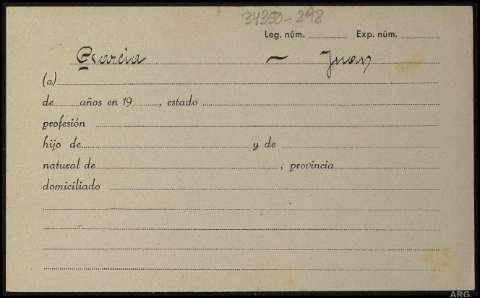 34350-898
Leg. núm. Exp. núm.
García — Juan
(a)
de años en 19 , estado
profesión
hijo de y de
natural de , provincia
domiciliado
ARG